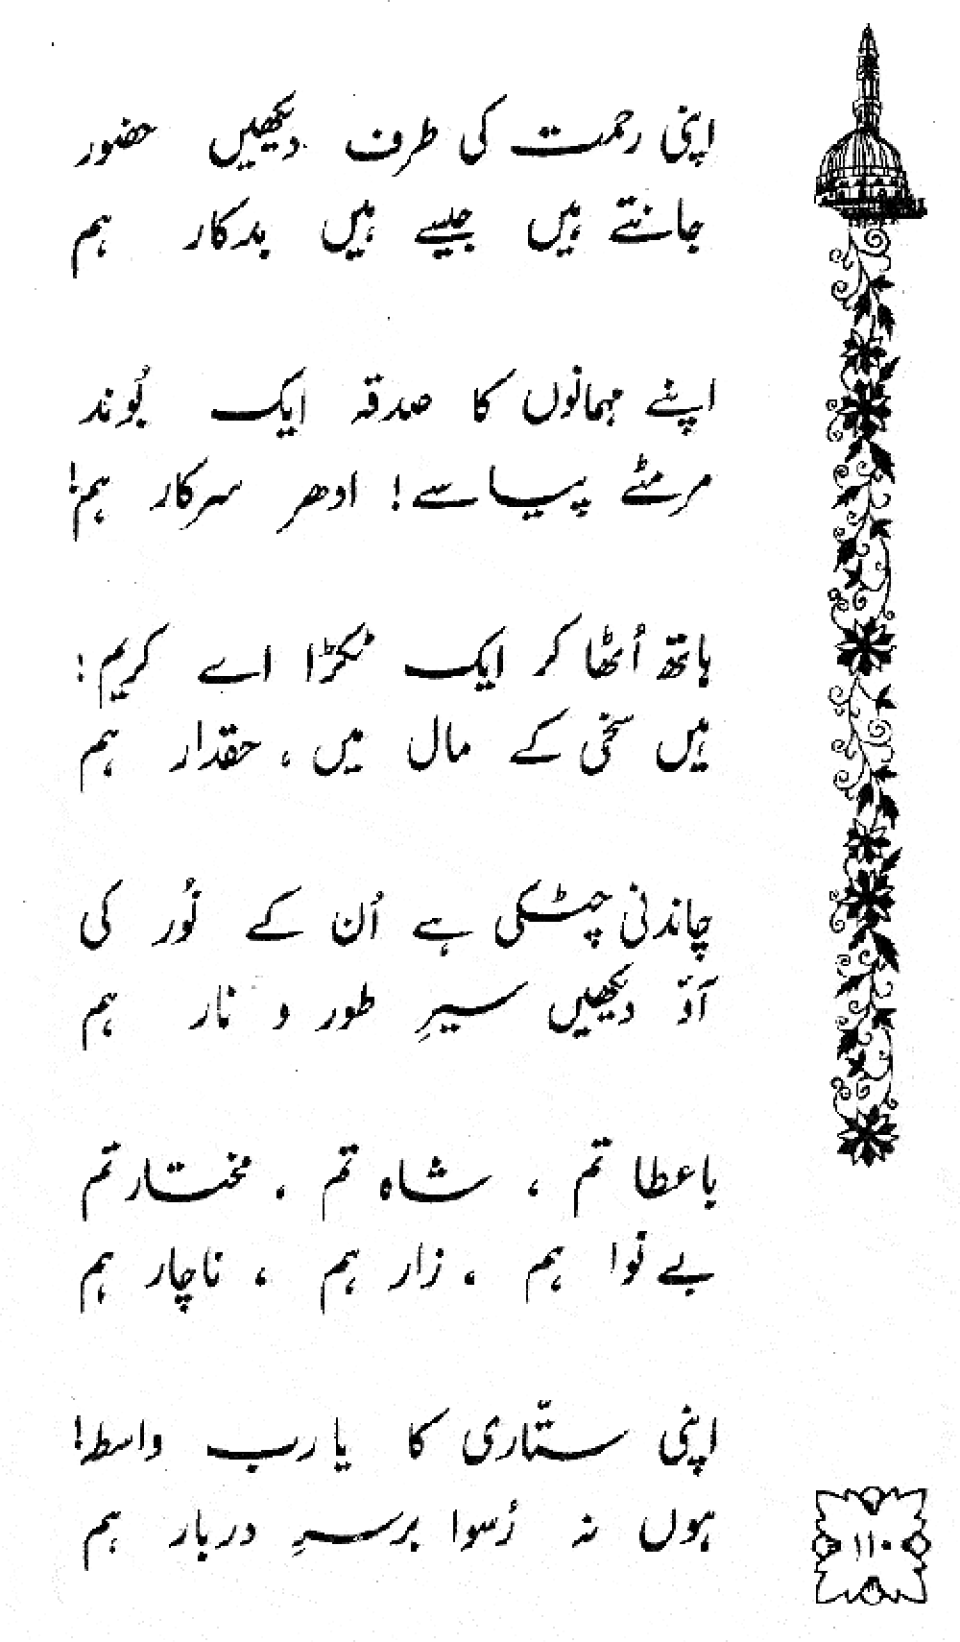 اپنی رحمت کی طرف دیکھیں حضور
جانتے ہیں جیسے ہیں بدکار ہم
اپنے مہمانوں کا صدقہ ایک بُوند
مر مٹے پیاسے! ادھر سرکار ہم!
ہاتھ اُٹھا کر ایک ٹکڑا اے کریم!
ہیں سخی کے مال میں، حقدار ہم
چاندنی چٹکی ہے اُن کے نُور کی
آؤ دیکھیں سیرِ طور و نار ہم
باعطا تم، شاہ تم، مختار تم
بے نوا ہم، زار ہم، ناچار ہم
اپنی ستّاری کا یا رب واسطہ!
ہوں نہ رُسوا برسرِ دربار ہم
۱۱۰